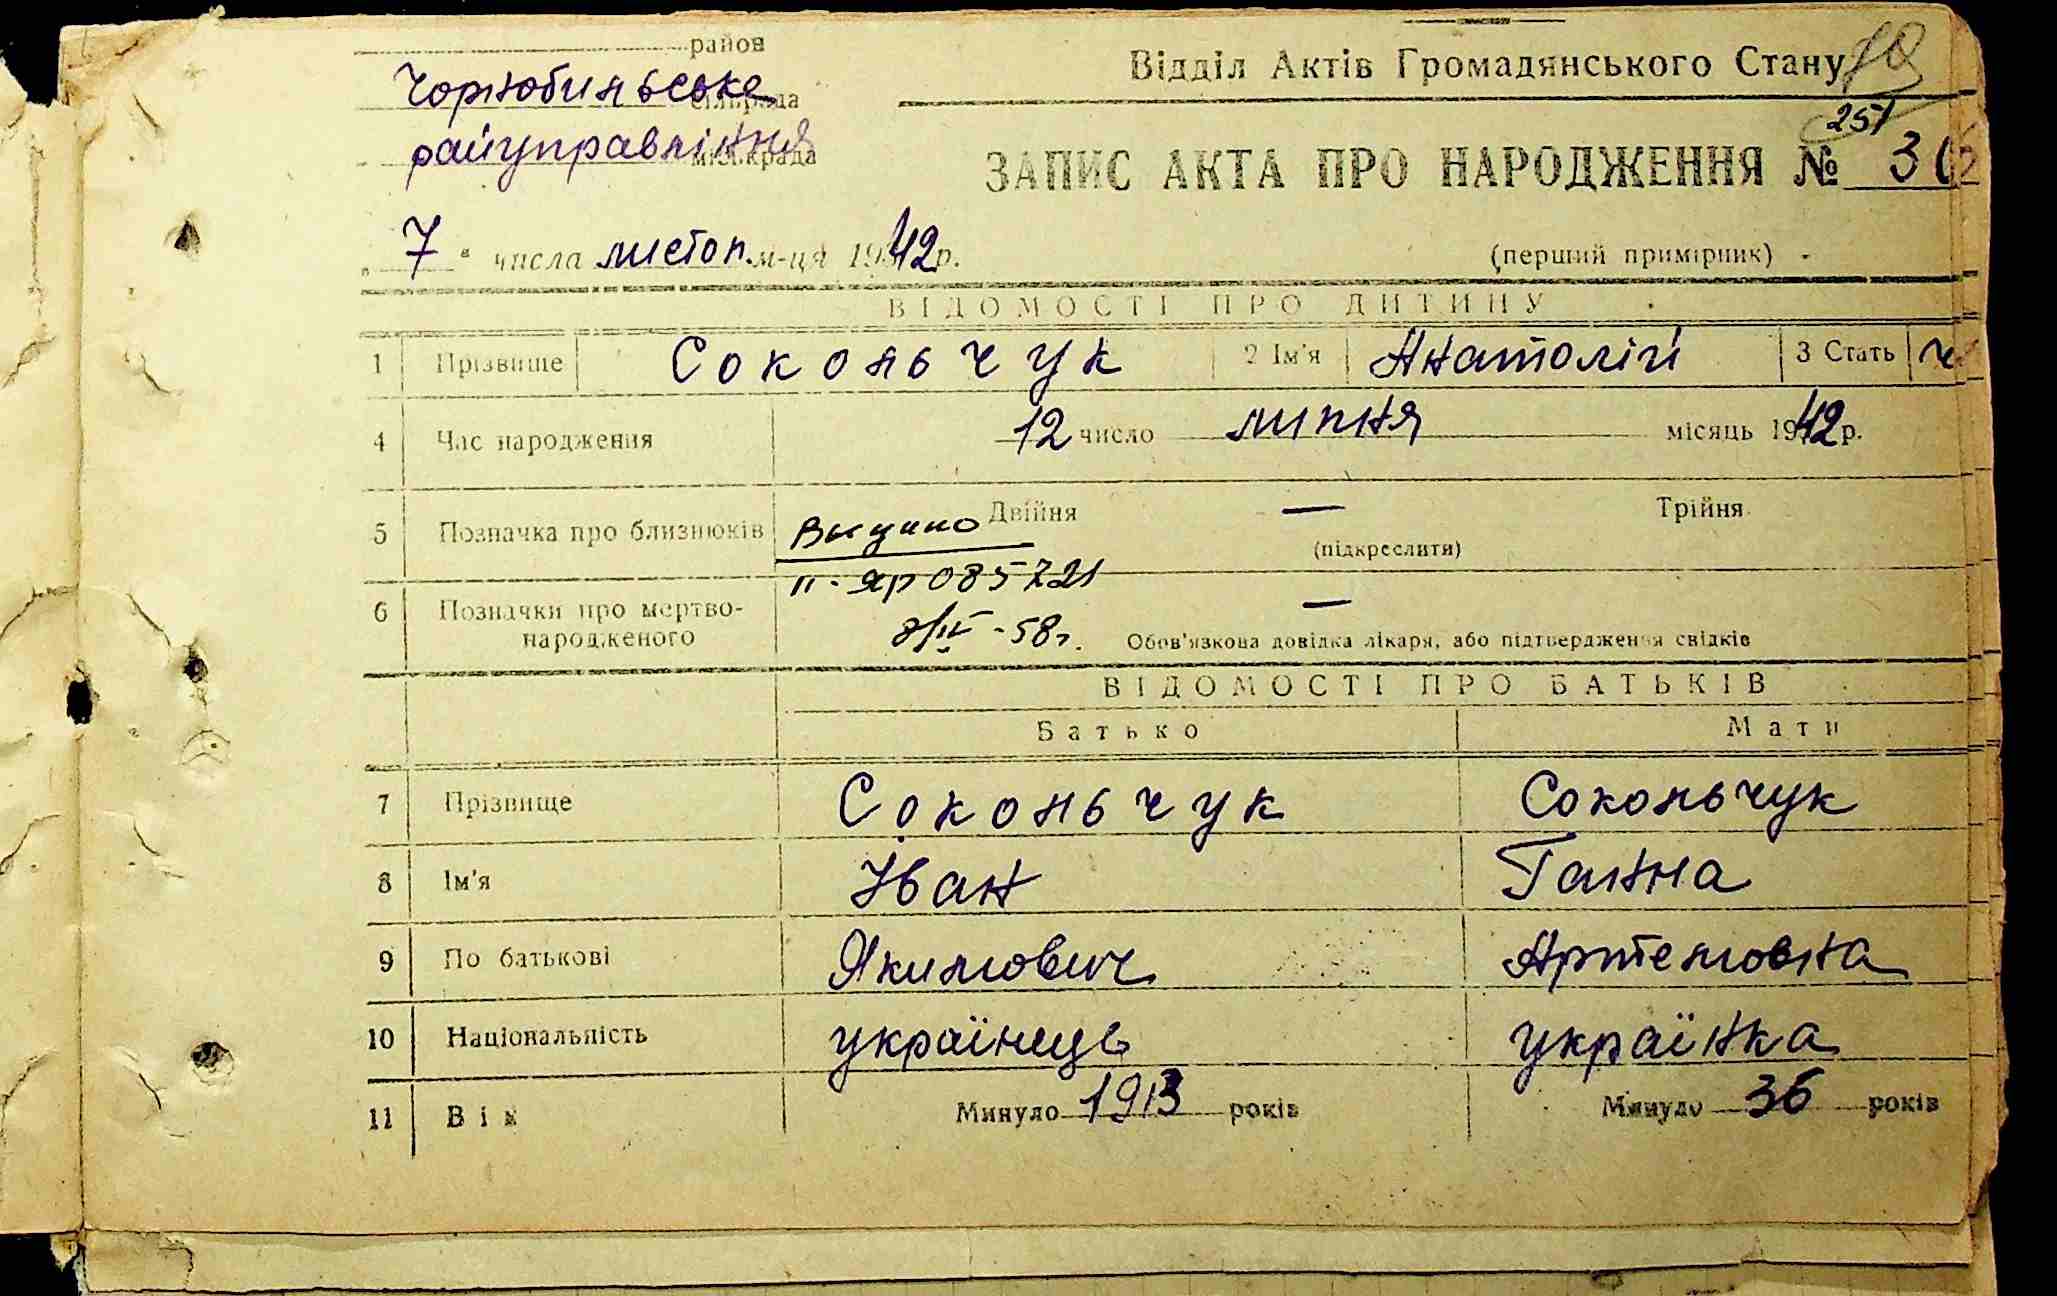 район
Чорнобильське
сільрада
райуправління
міськрада
Відділ Актів Громадянського Стану
257
ЗАПИС АКТА ПРО НАРОДЖЕННЯ № 302
„ 7 “ числа листоп. м-ця 1942 р.
(перший примірник)
ВІДОМОСТІ ПРО ДИТИНУ
1 Прізвище Сокольчук 2 Ім'я Анатолій 3 Стать ч
4 Час народження 12 число липня місяць 1942 р.
5 Позначка про близнюків Двійня — Трійня
(підкреслити)
Выдано
II-ЯР 085721
8/IV-58г.
6 Позначки про мертво-
народженого —
Обов'язкова довідка лікаря, або підтвердження свідків
ВІДОМОСТІ ПРО БАТЬКІВ
Батько Мати
7 Прізвище Сокольчук Сокольчук
8 Ім'я Іван Ганна
9 По батькові Якимович Артемовна
10 Національність українець українка
11 Вік Минуло 1913 років Минуло 36 років